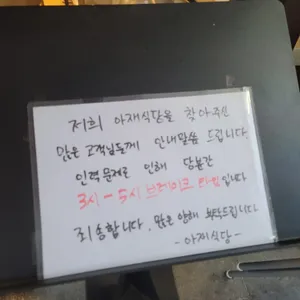 저희 아재식당을 찾아주신
많은 고객님들께 안내말씀 드립니다
인력문제로 인해 당분간
3시 - 5시 브레이크 타임입니다
죄송합니다. 많은 양해 부탁드립니다
- 아재식당 -